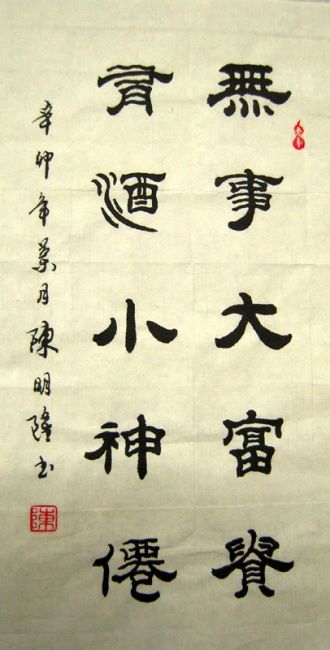 無事大富貴
有酒小神僊
辛卯年菊月陳明隆書
陳